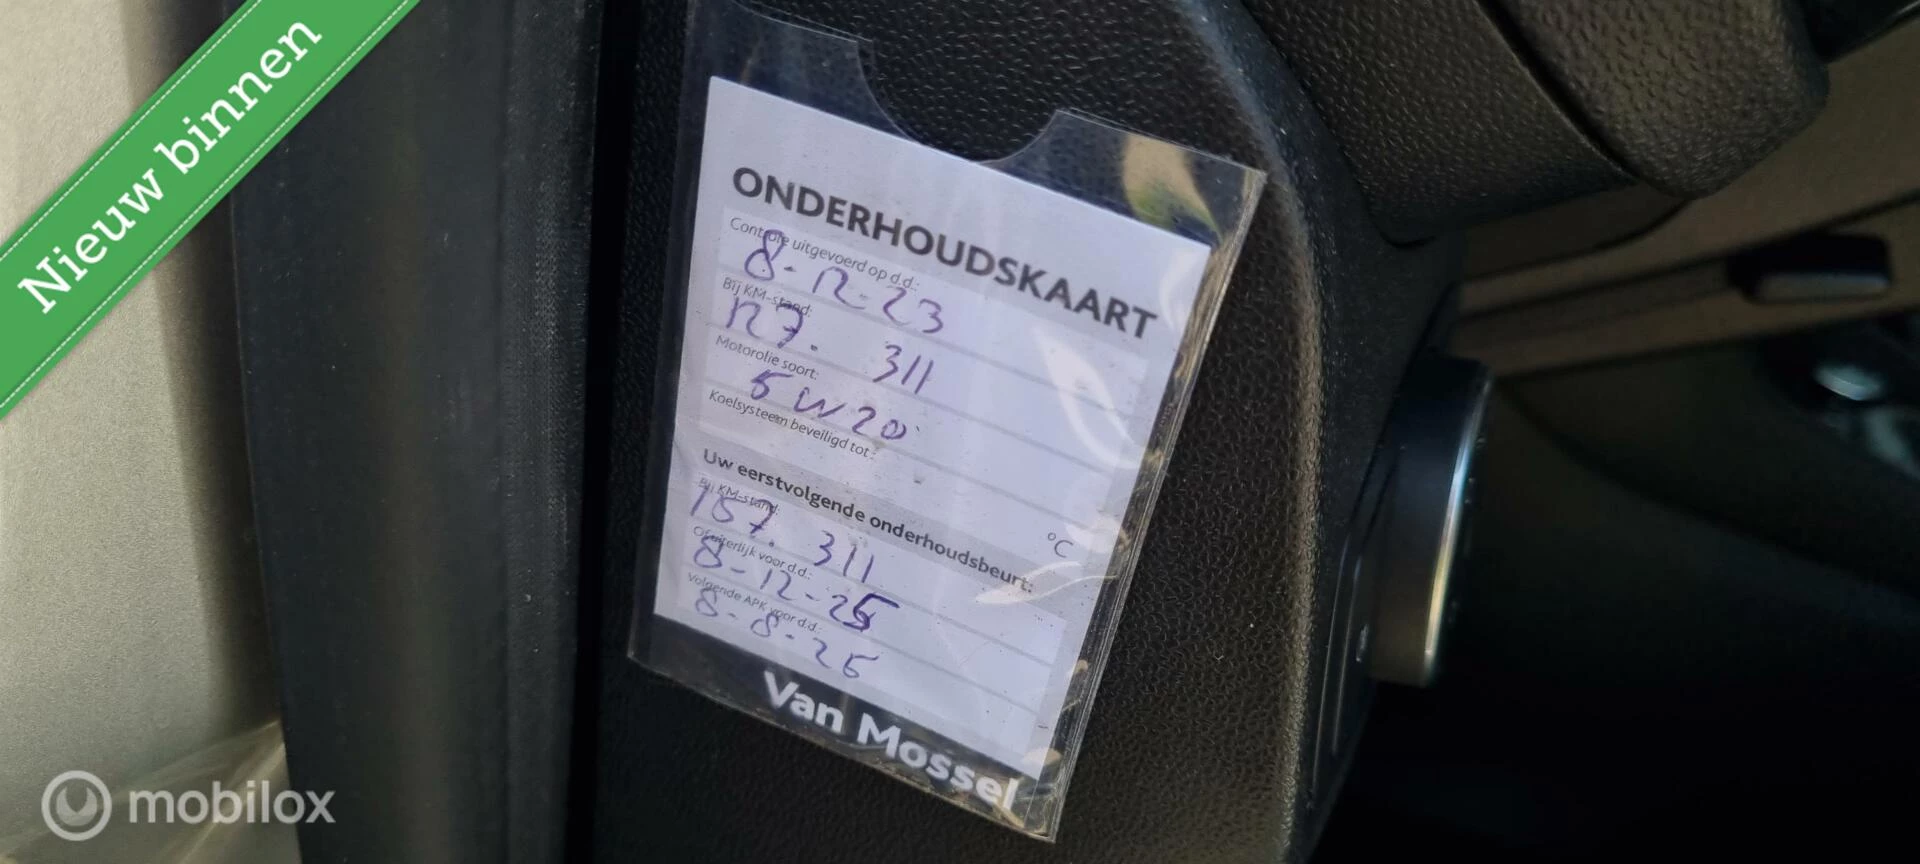 Nieuw binnen
ONDERHOUDSKAART
Controle uitgevoerd op d.d.:
8-12-23
Bij KM-stand:
127. 311
Motorolie soort:
5W20
Koelsysteem beveiligd tot:
°C
Uw eerstvolgende onderhoudsbeurt:
Bij KM-stand:
157. 311
Of uiterlijk voor d.d.:
8-12-25
Volgende APK voor d.d.:
8-8-25
Van Mossel
mobilox